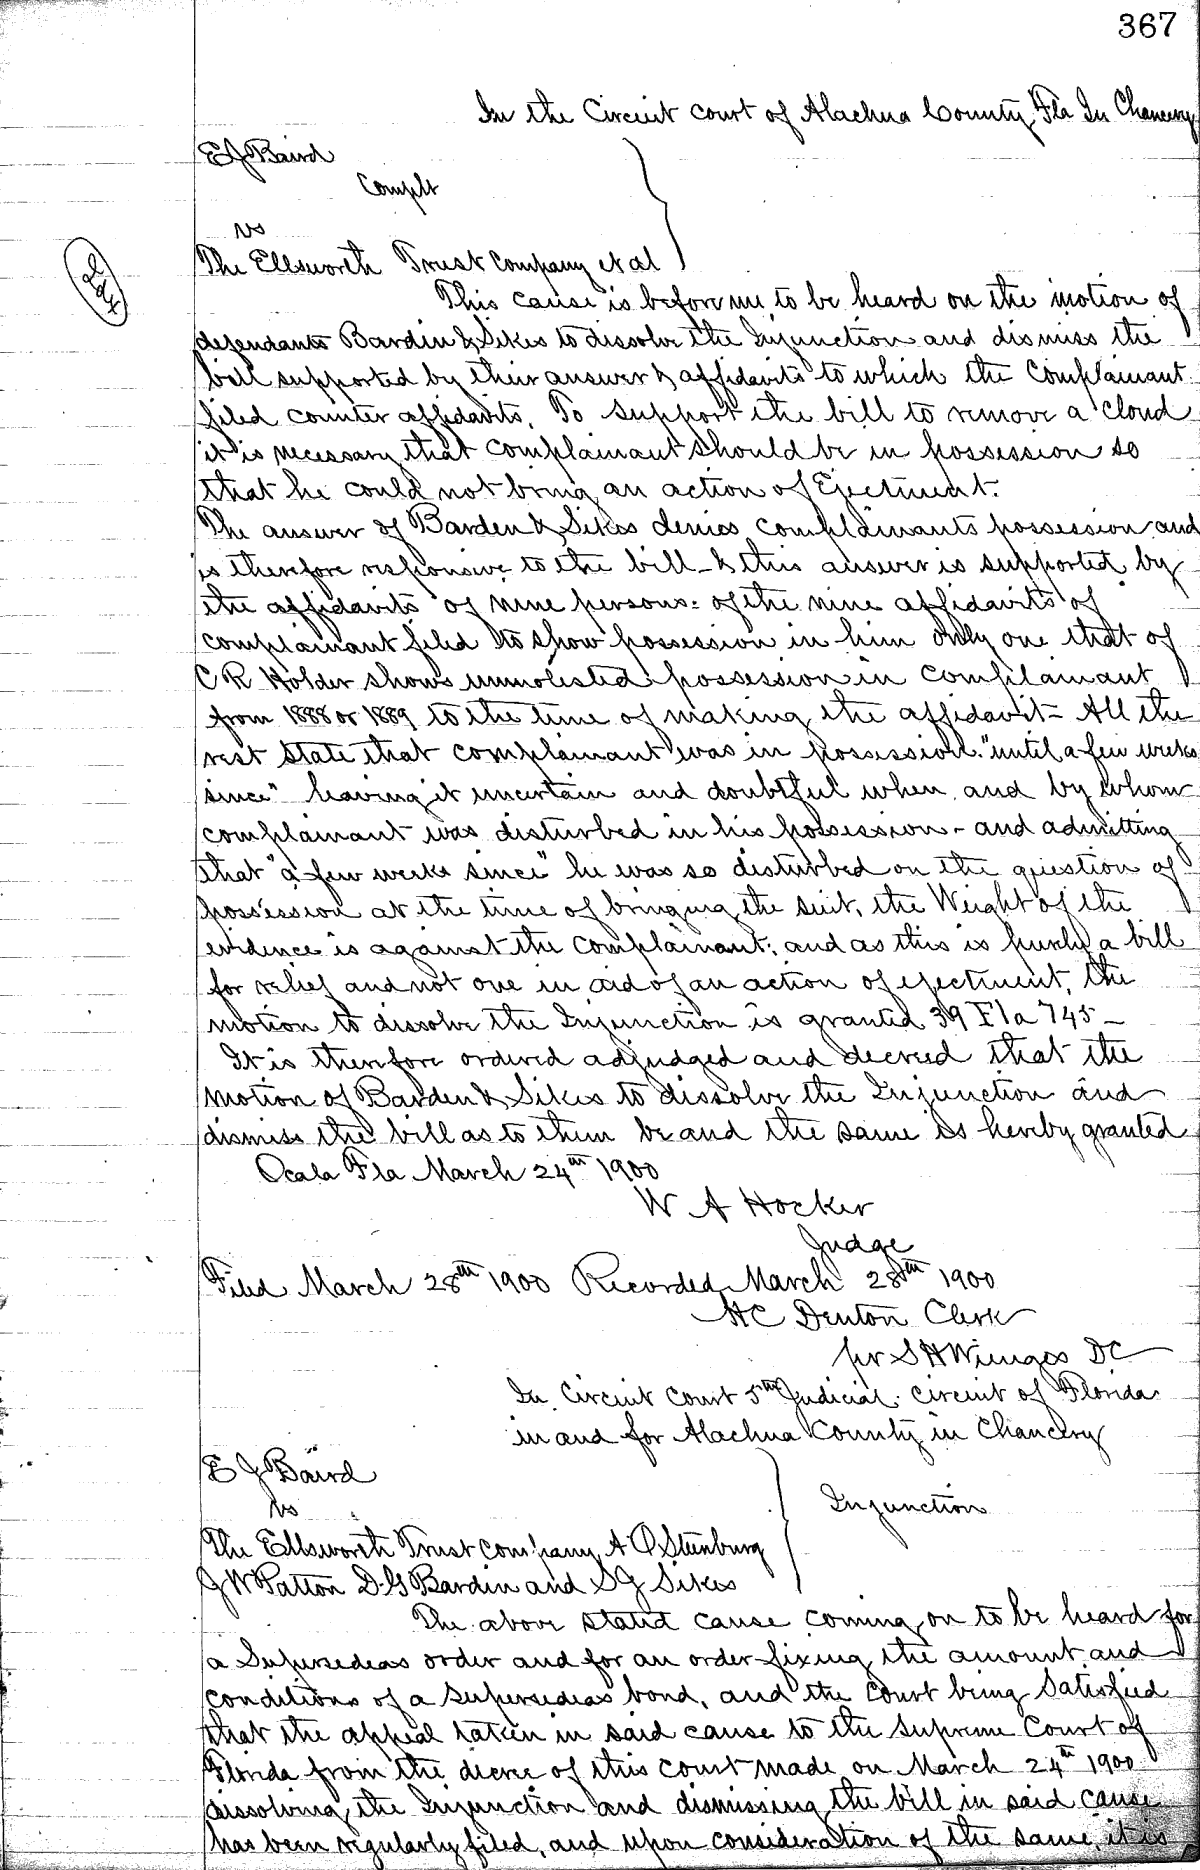 367
In the Circuit court of Alachua County, Fla In Chancery
E J Baird
Complt
vs
The Ellsworth Trust Company et al
This cause is before me to be heard on the motion of
defendants Bardin & Sikes to dissolve the Injunction and dismiss the
bill supported by their answer & affidavits to which the Complainant
filed counter affidavits. To support the bill to remove a cloud
it is necessary that complainant should be in possession so
that he could not bring an action of Ejectment.
The answer of Barden & Sikes denies complainants possession and
is therefore responsive to the bill - & this answer is supported by
the affidavits of nine persons: of the nine affidavits of
complainant filed to show possession in him only one that of
C R Holder shows unmolested possession in complainant
from 1888 or 1889 to the time of making the affidavit - All the
rest state that complainant was in possession "until a few weeks
since" leaving it uncertain and doubtful when and by whom
complainant was disturbed in his possession - and admitting
that "a few weeks since" he was so disturbed on the question of
possession at the time of bringing the suit, the Weight of the
evidence is against the complainant; and as this is purely a bill
for relief and not one in aid of an action of ejectment, the
motion to dissolve the Injunction is granted 39 Fla 745 -
It is therefore ordered adjudged and decreed that the
motion of Barden & Sikes to dissolve the Injunction and
dismiss the bill as to them be and the same is hereby granted
Ocala Fla March 24th 1900
W A Hocker
Judge
Filed March 28th 1900 Recorded March 28th 1900
H C Denton Clerk
per S H Wienges DC
In Circuit Court 5th Judicial circuit of Florida
in and for Alachua County in Chancery
E J Baird
vs
Injunction
The Ellsworth Trust Company, A O Steenburg
J W Patton D. G Bardin and S J Sikes
The above stated cause coming on to be heard for
a Supersedeas order and for an order fixing the amount and
conditions of a supersedeas bond, and the court being satisfied
that the appeal taken in said cause to the Supreme Court of
Florida from the decree of this court made on March 24th 1900
dissolving the Injunction and dismissing the bill in said cause
has been regularly filed, and upon consideration of the same, it is